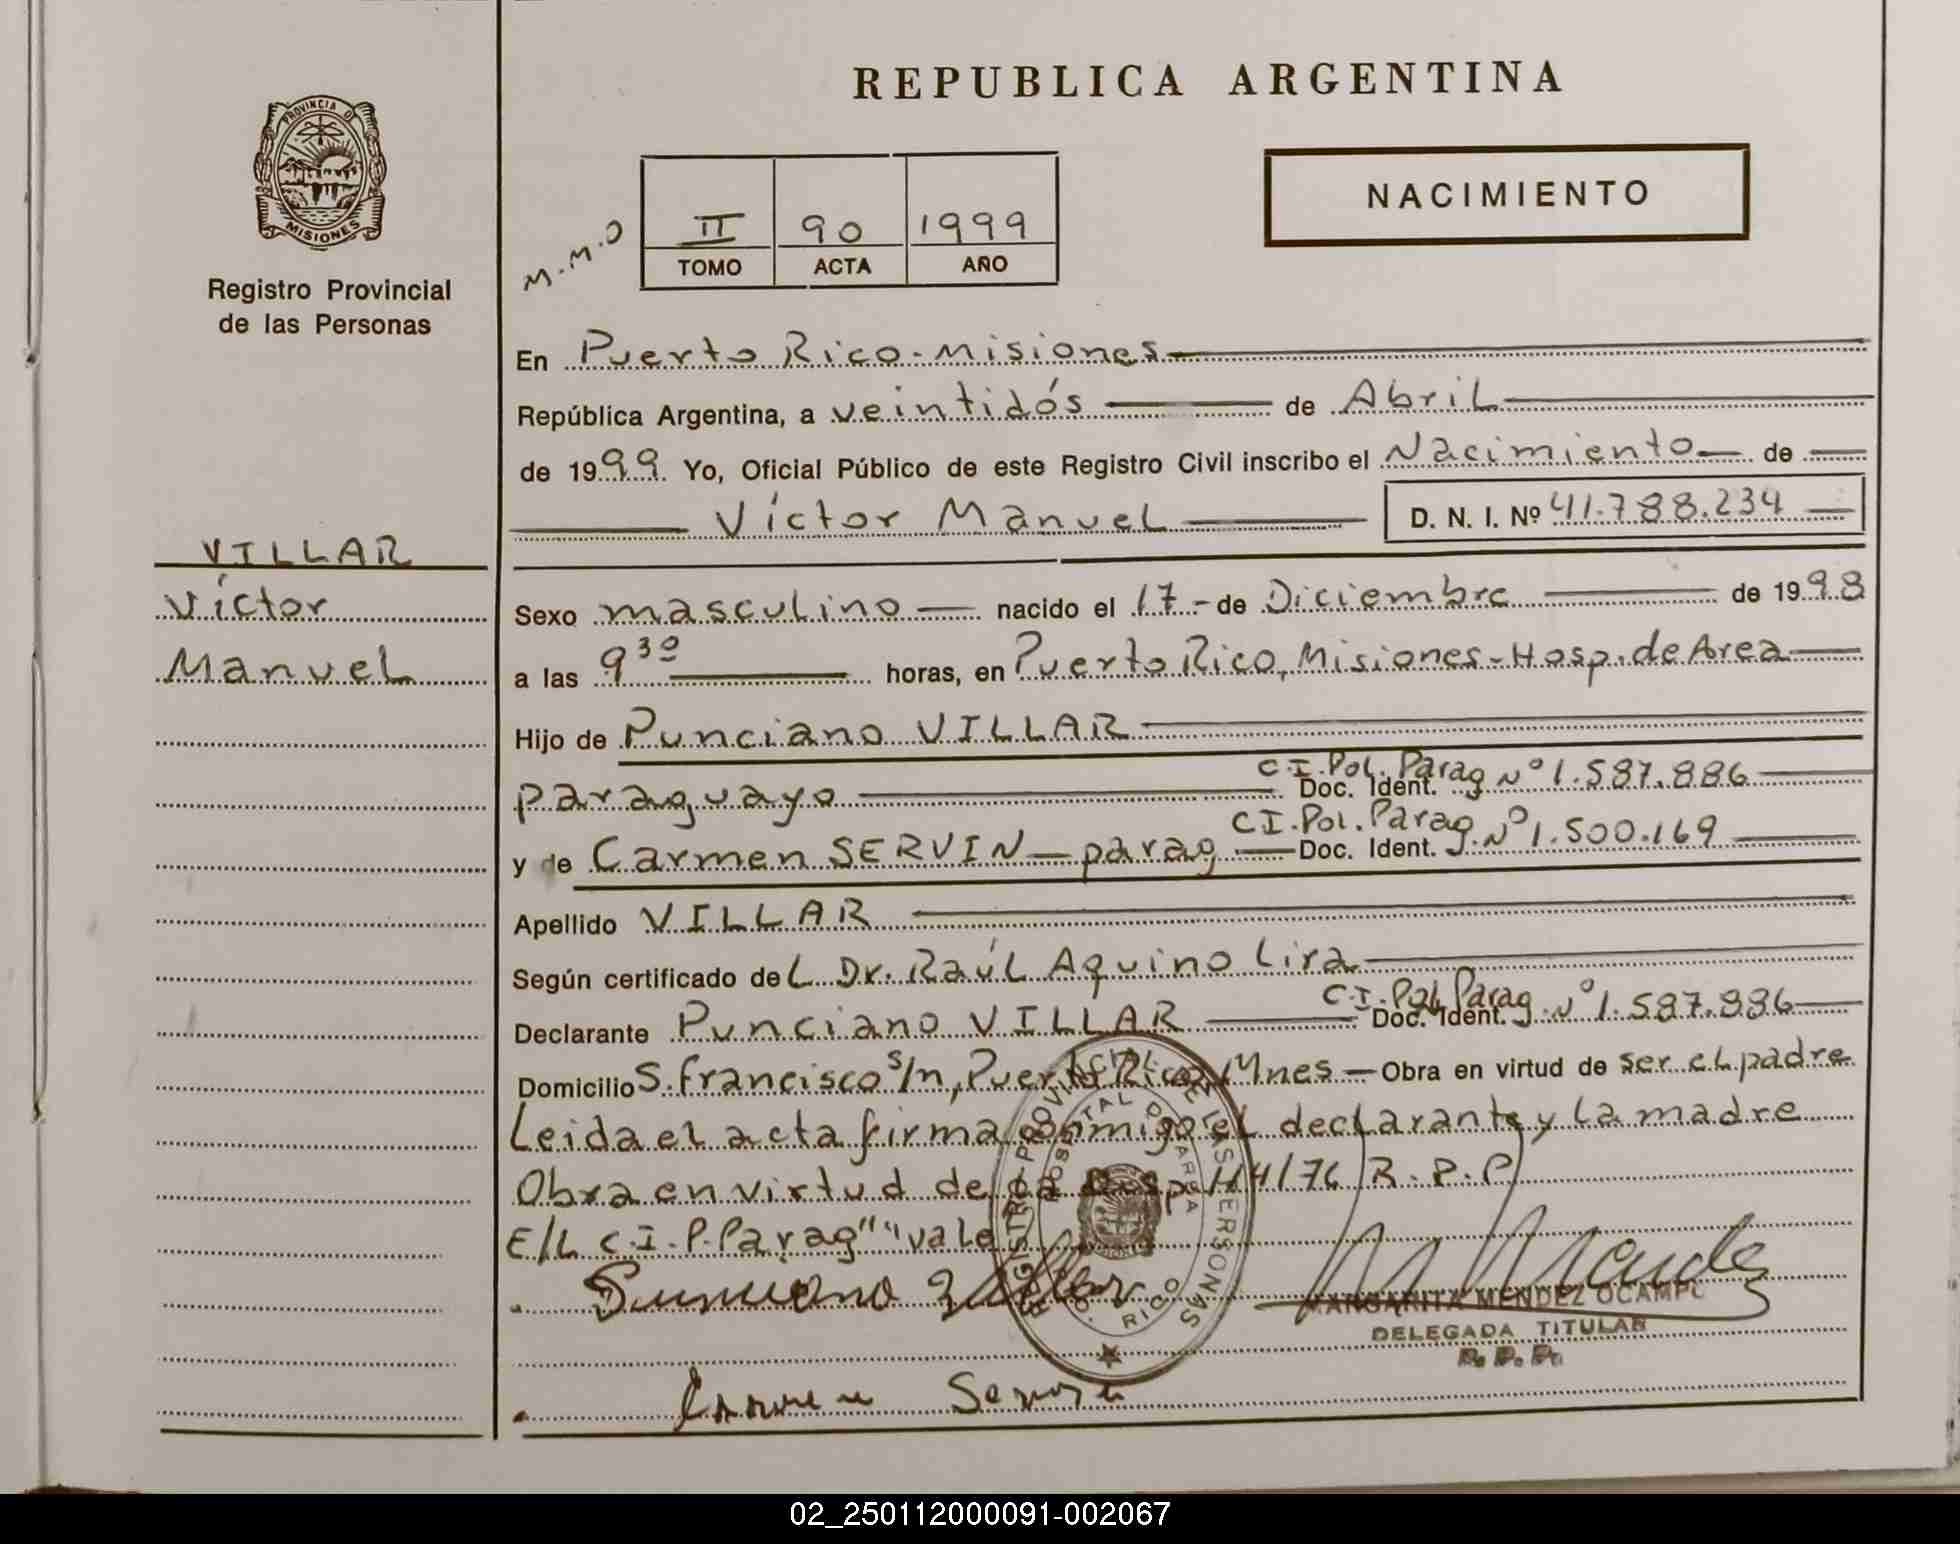 REPUBLICA ARGENTINA
PROVINCIA D
MISIONES
Registro Provincial
de las Personas
M.M.O
II 90 1999
TOMO ACTA AÑO
NACIMIENTO
En Puerto Rico - Misiones
República Argentina, a veintidós de Abril
de 1999 Yo, Oficial Público de este Registro Civil inscribo el Nacimiento de
Víctor Manuel D. N. I. Nº 41.788.234
VILLAR
Víctor
Manuel
Sexo masculino nacido el 17 - de Diciembre de 1998
a las 9 30 horas, en Puerto Rico, Misiones - Hosp. de Area
Hijo de Punciano VILLAR
paraguayo C.I. Pol. Parag Nº 1.587.886
Doc. Ident.
y de Carmen SERVIN - parag C.I. Pol. Parag. Nº 1.500.169
Doc. Ident.
Apellido VILLAR
Según certificado del Dr. Raúl Aquino Lira
Declarante Punciano VILLAR C.I. Pol. Parag. Nº 1.587.886
Doc. Ident.
Domicilio S. Francisco s/n, Puerto Rico, Mnes - Obra en virtud de ser el padre
Leida el acta firma conmigo el declarante y la madre
Obra en virtud de la Disp. 114/76 R.P.P)
E/L C.I. P. Parag" "vale
REGISTRO PROVINCIAL DE LAS PERSONAS
HOSPITAL DE AREA
RICO
MARGARITA MENDEZ OCAMPO
DELEGADA TITULAR
R. P. P.
Carmen Servin
02_250112000091-002067